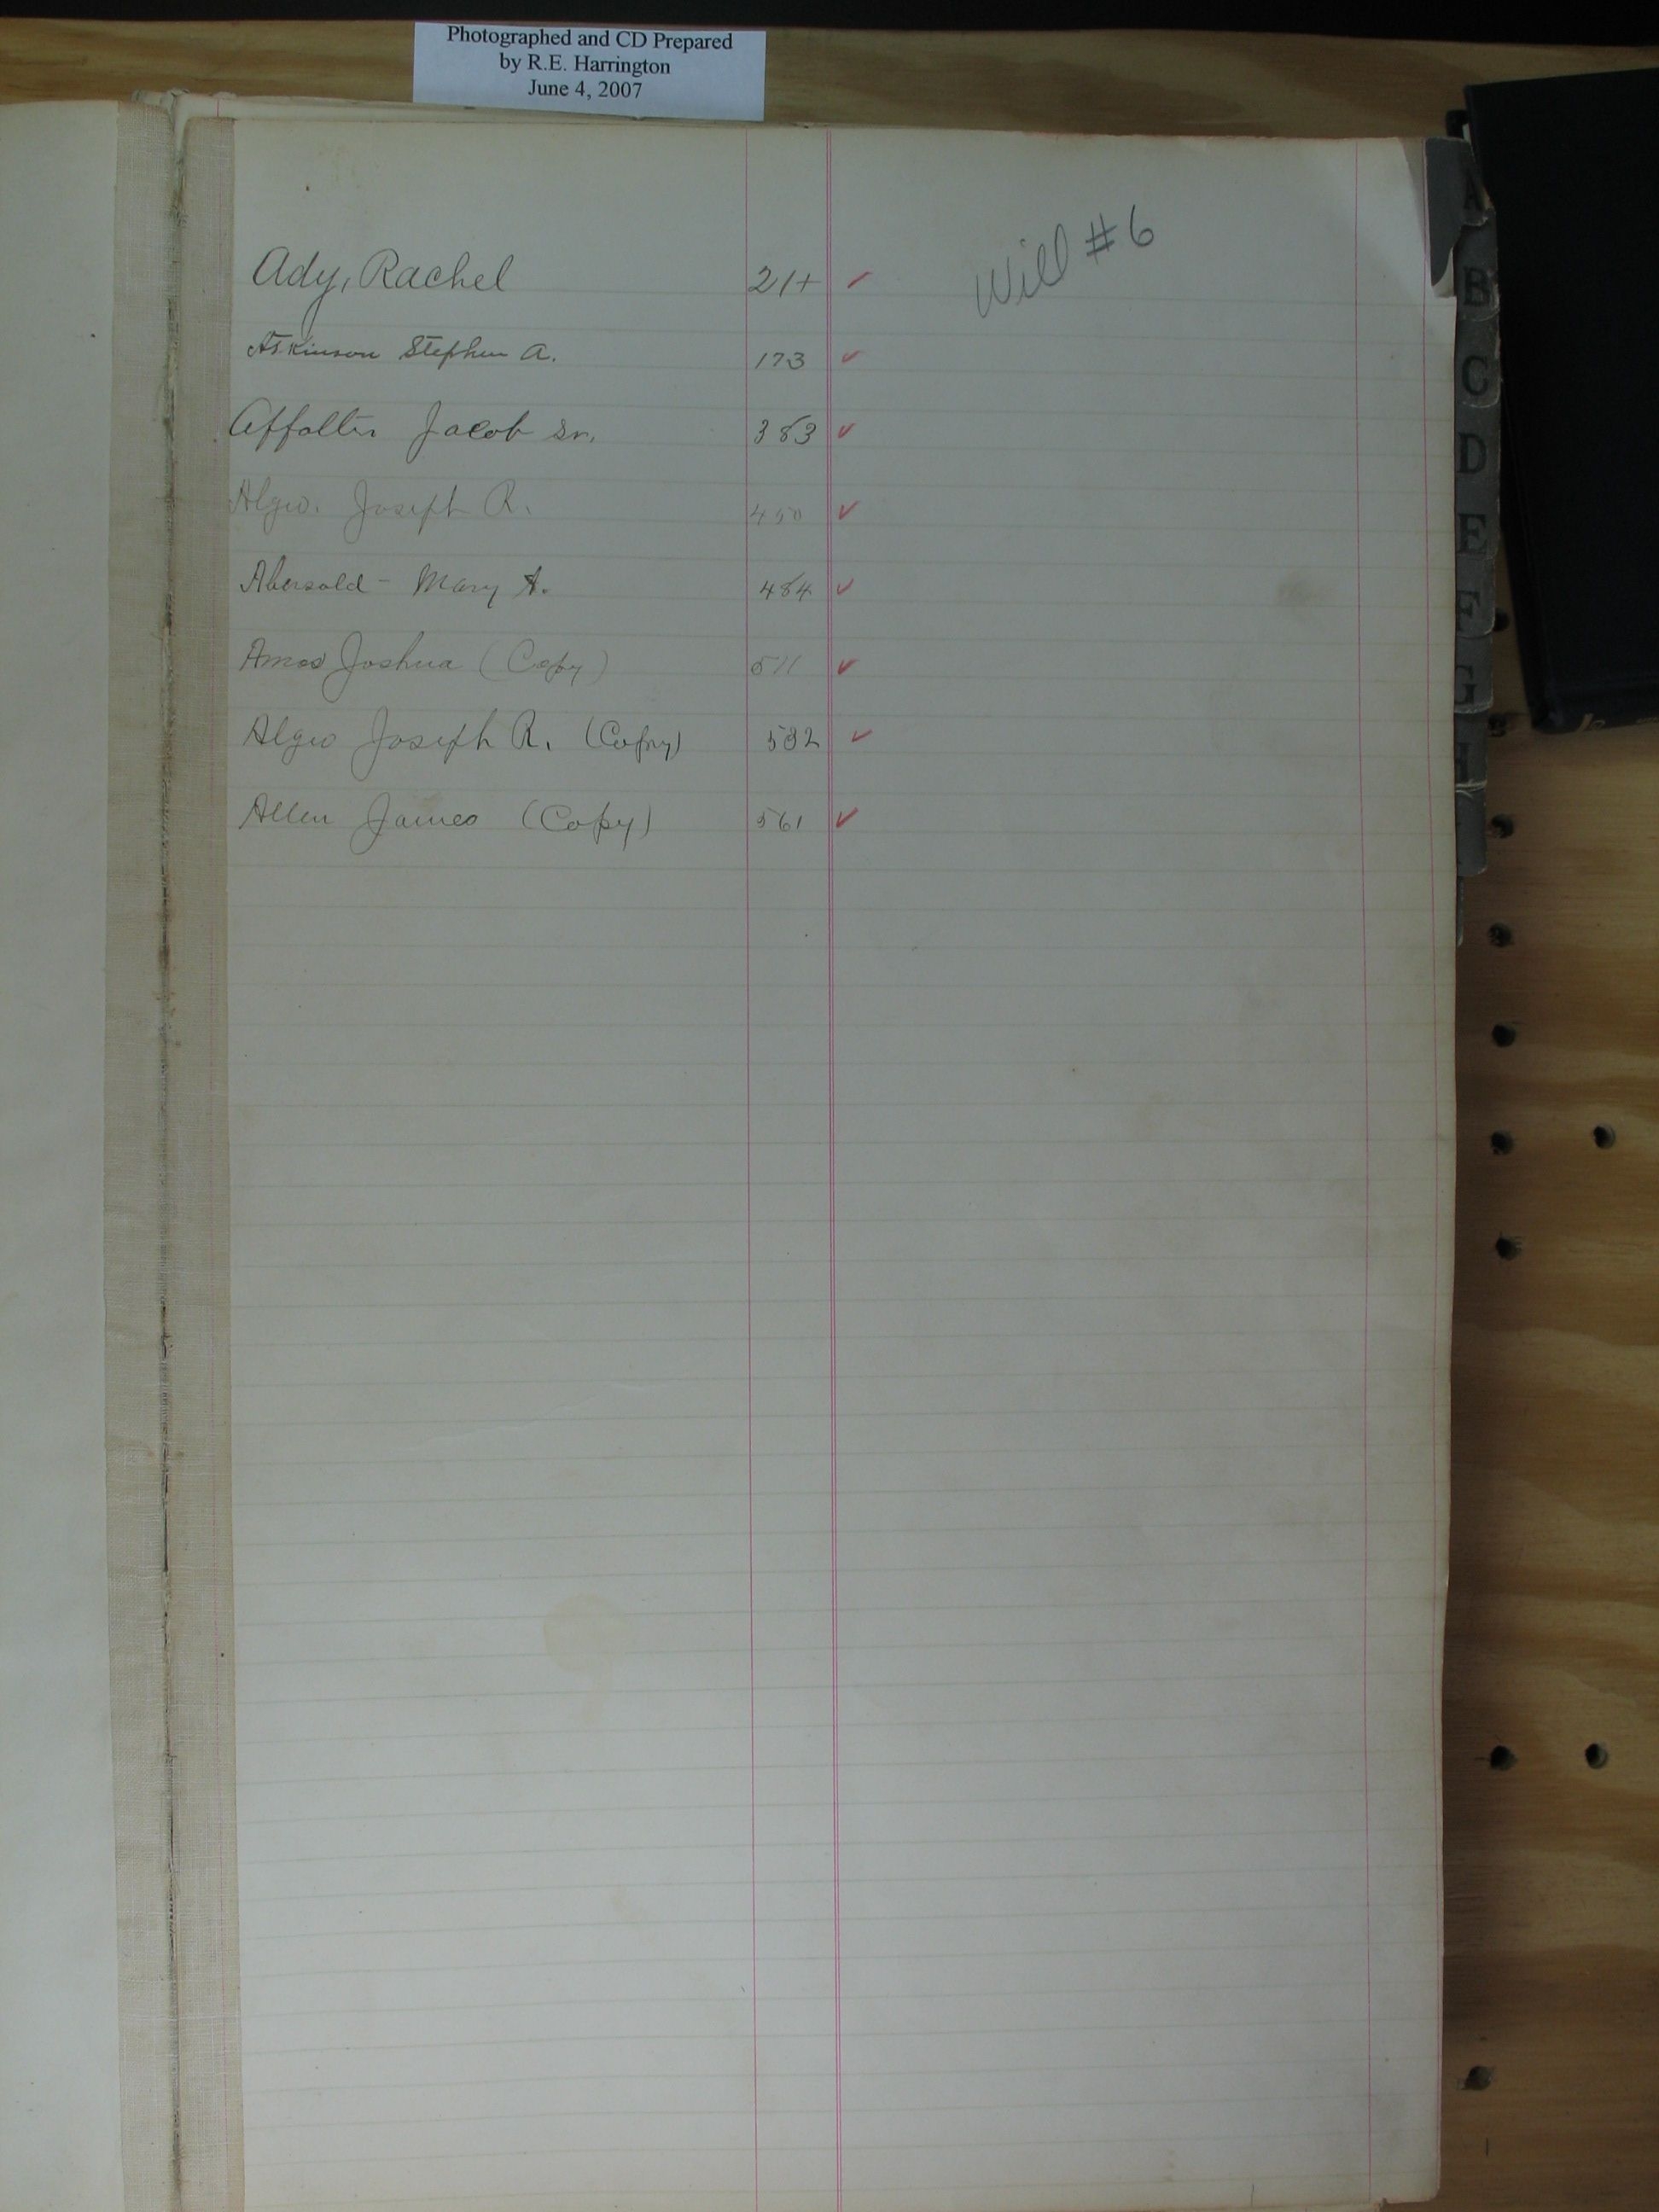 Photographed and CD Prepared
by R.E. Harrington
June 4, 2007
Will #6
Ady, Rachel 21+ ✓
Atkinson Stephen A. 173 ✓
Affolter Jacob Sr. 383 ✓
Algeo. Joseph R. 450 ✓
Abersold - Mary A. 484 ✓
Amos Joshua (Copy) 511 ✓
Algeo Joseph R. (Copy) 532 ✓
Allen James (Copy) 561 ✓
A
B
C
D
E
F
G
H